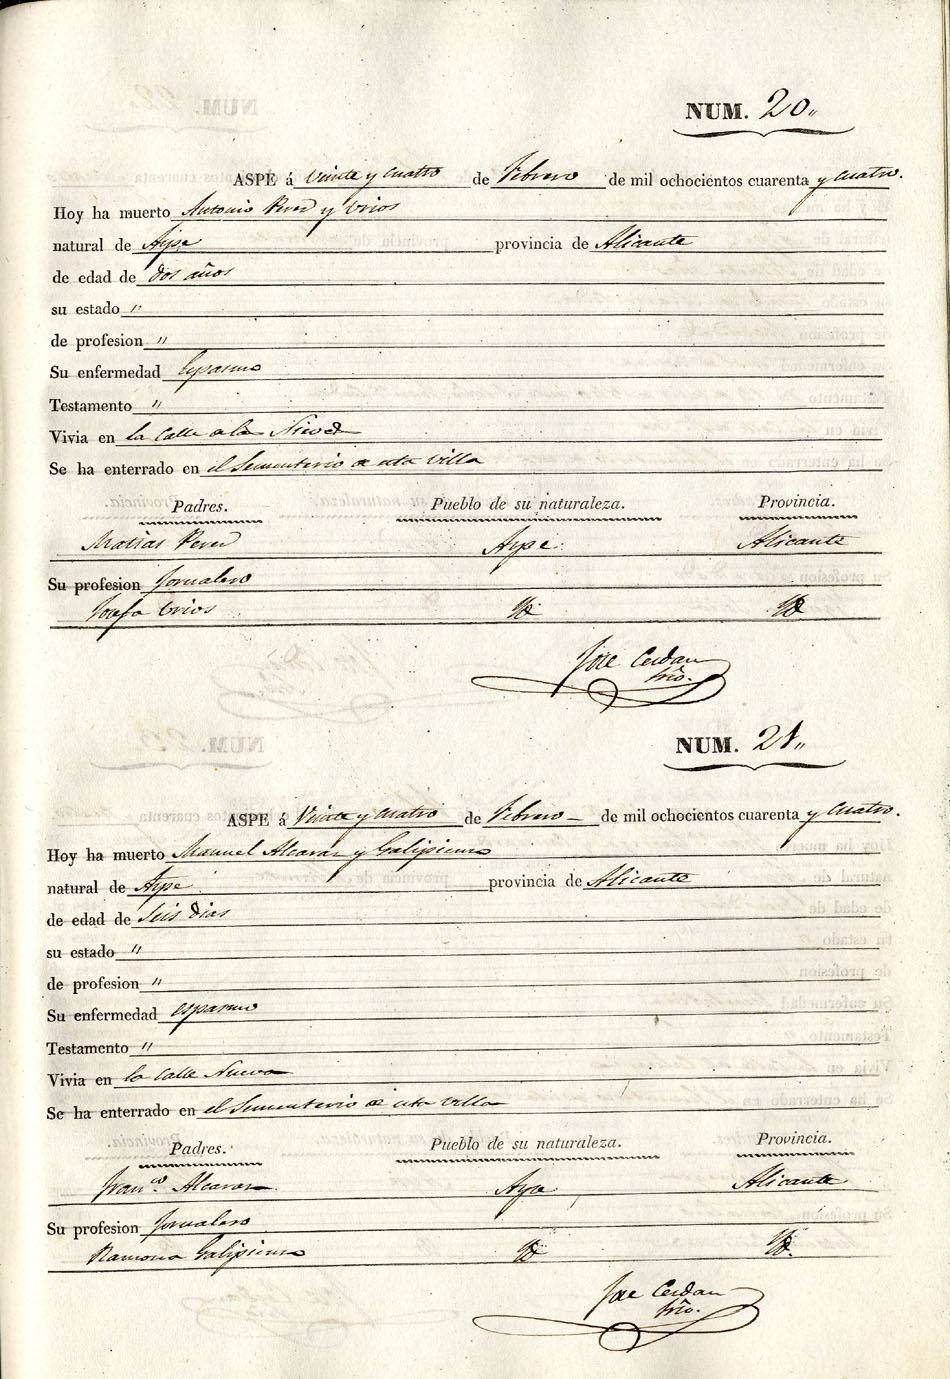 NUM. 20.,
ASPE á Veinte y cuatro de Febrero de mil ochocientos cuarenta y cuatro.
Hoy ha muerto Antonio Perez y Urios
natural de Aspe provincia de Alicante
de edad de dos años
su estado "
de profesion "
Su enfermedad Espasmo
Testamento "
Vivia en la Calle de las Nieves
Se ha enterrado en el Sementerio de esta villa
Padres. Pueblo de su naturaleza. Provincia.
Matias Perez Aspe Alicante
Su profesion Jornalero
Josefa Urios Yd. Yd.
Jose Cerdan
Srio.
NUM. 21.,
ASPE á Veinte y cuatro de Febrero de mil ochocientos cuarenta y cuatro.
Hoy ha muerto Manuel Alcaraz y Galipienso
natural de Aspe provincia de Alicante
de edad de Seis dias
su estado "
de profesion "
Su enfermedad espasmo
Testamento "
Vivia en la Calle Nueva
Se ha enterrado en el Sementerio de esta villa
Padres. Pueblo de su naturaleza. Provincia.
Fran.co Alcaraz Aspe Alicante
Su profesion Jornalero
Ramona Galipienso Yd. Yd.
Jose Cerdan
Srio.